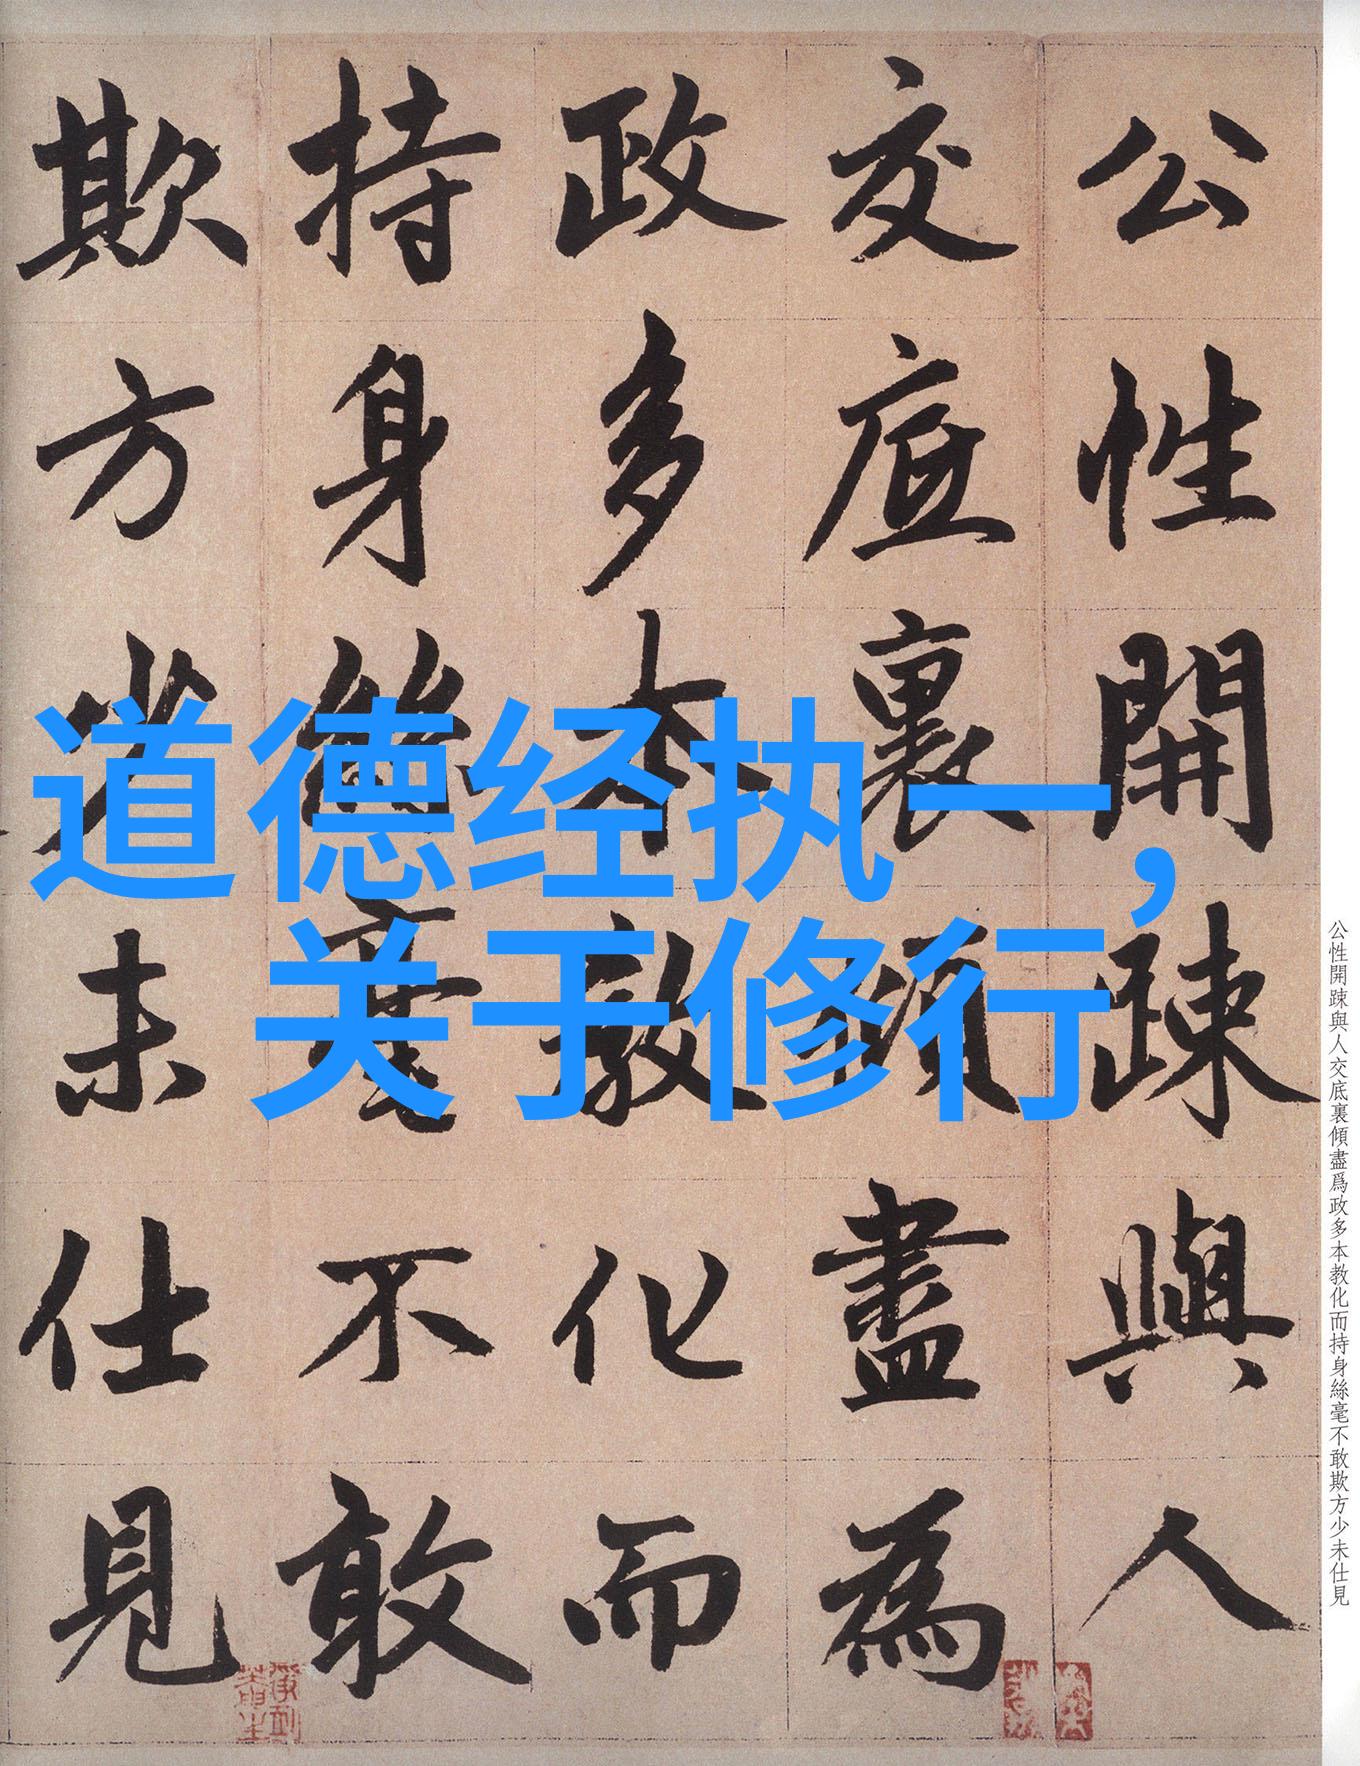 公性開踈與人
交底裏傾盡為
政多本教化而
持身絲毫不敢
欺方少未仕見
道德经执一，
关于修行
公性開踈與人交底裏傾盡爲政多本教化而持身絲毫不敢欺方少未仕見